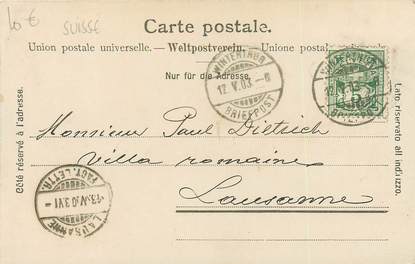 10 €
SUISSE
Carte postale.
Union postale universelle. — Weltpostverein. — Unione postale
Nur für die Adresse.
WINTERTHUR
12. V. 03. - 8
BRIEFPOST
WINTERTHUR
BRIEFPOST
5
Côté réservé à l'adresse.
Lato riservato all'indirizzo.
Monsieur Paul Dietrich
Villa romaine
Lausanne
LAUSANNE
FACT. LETTR.